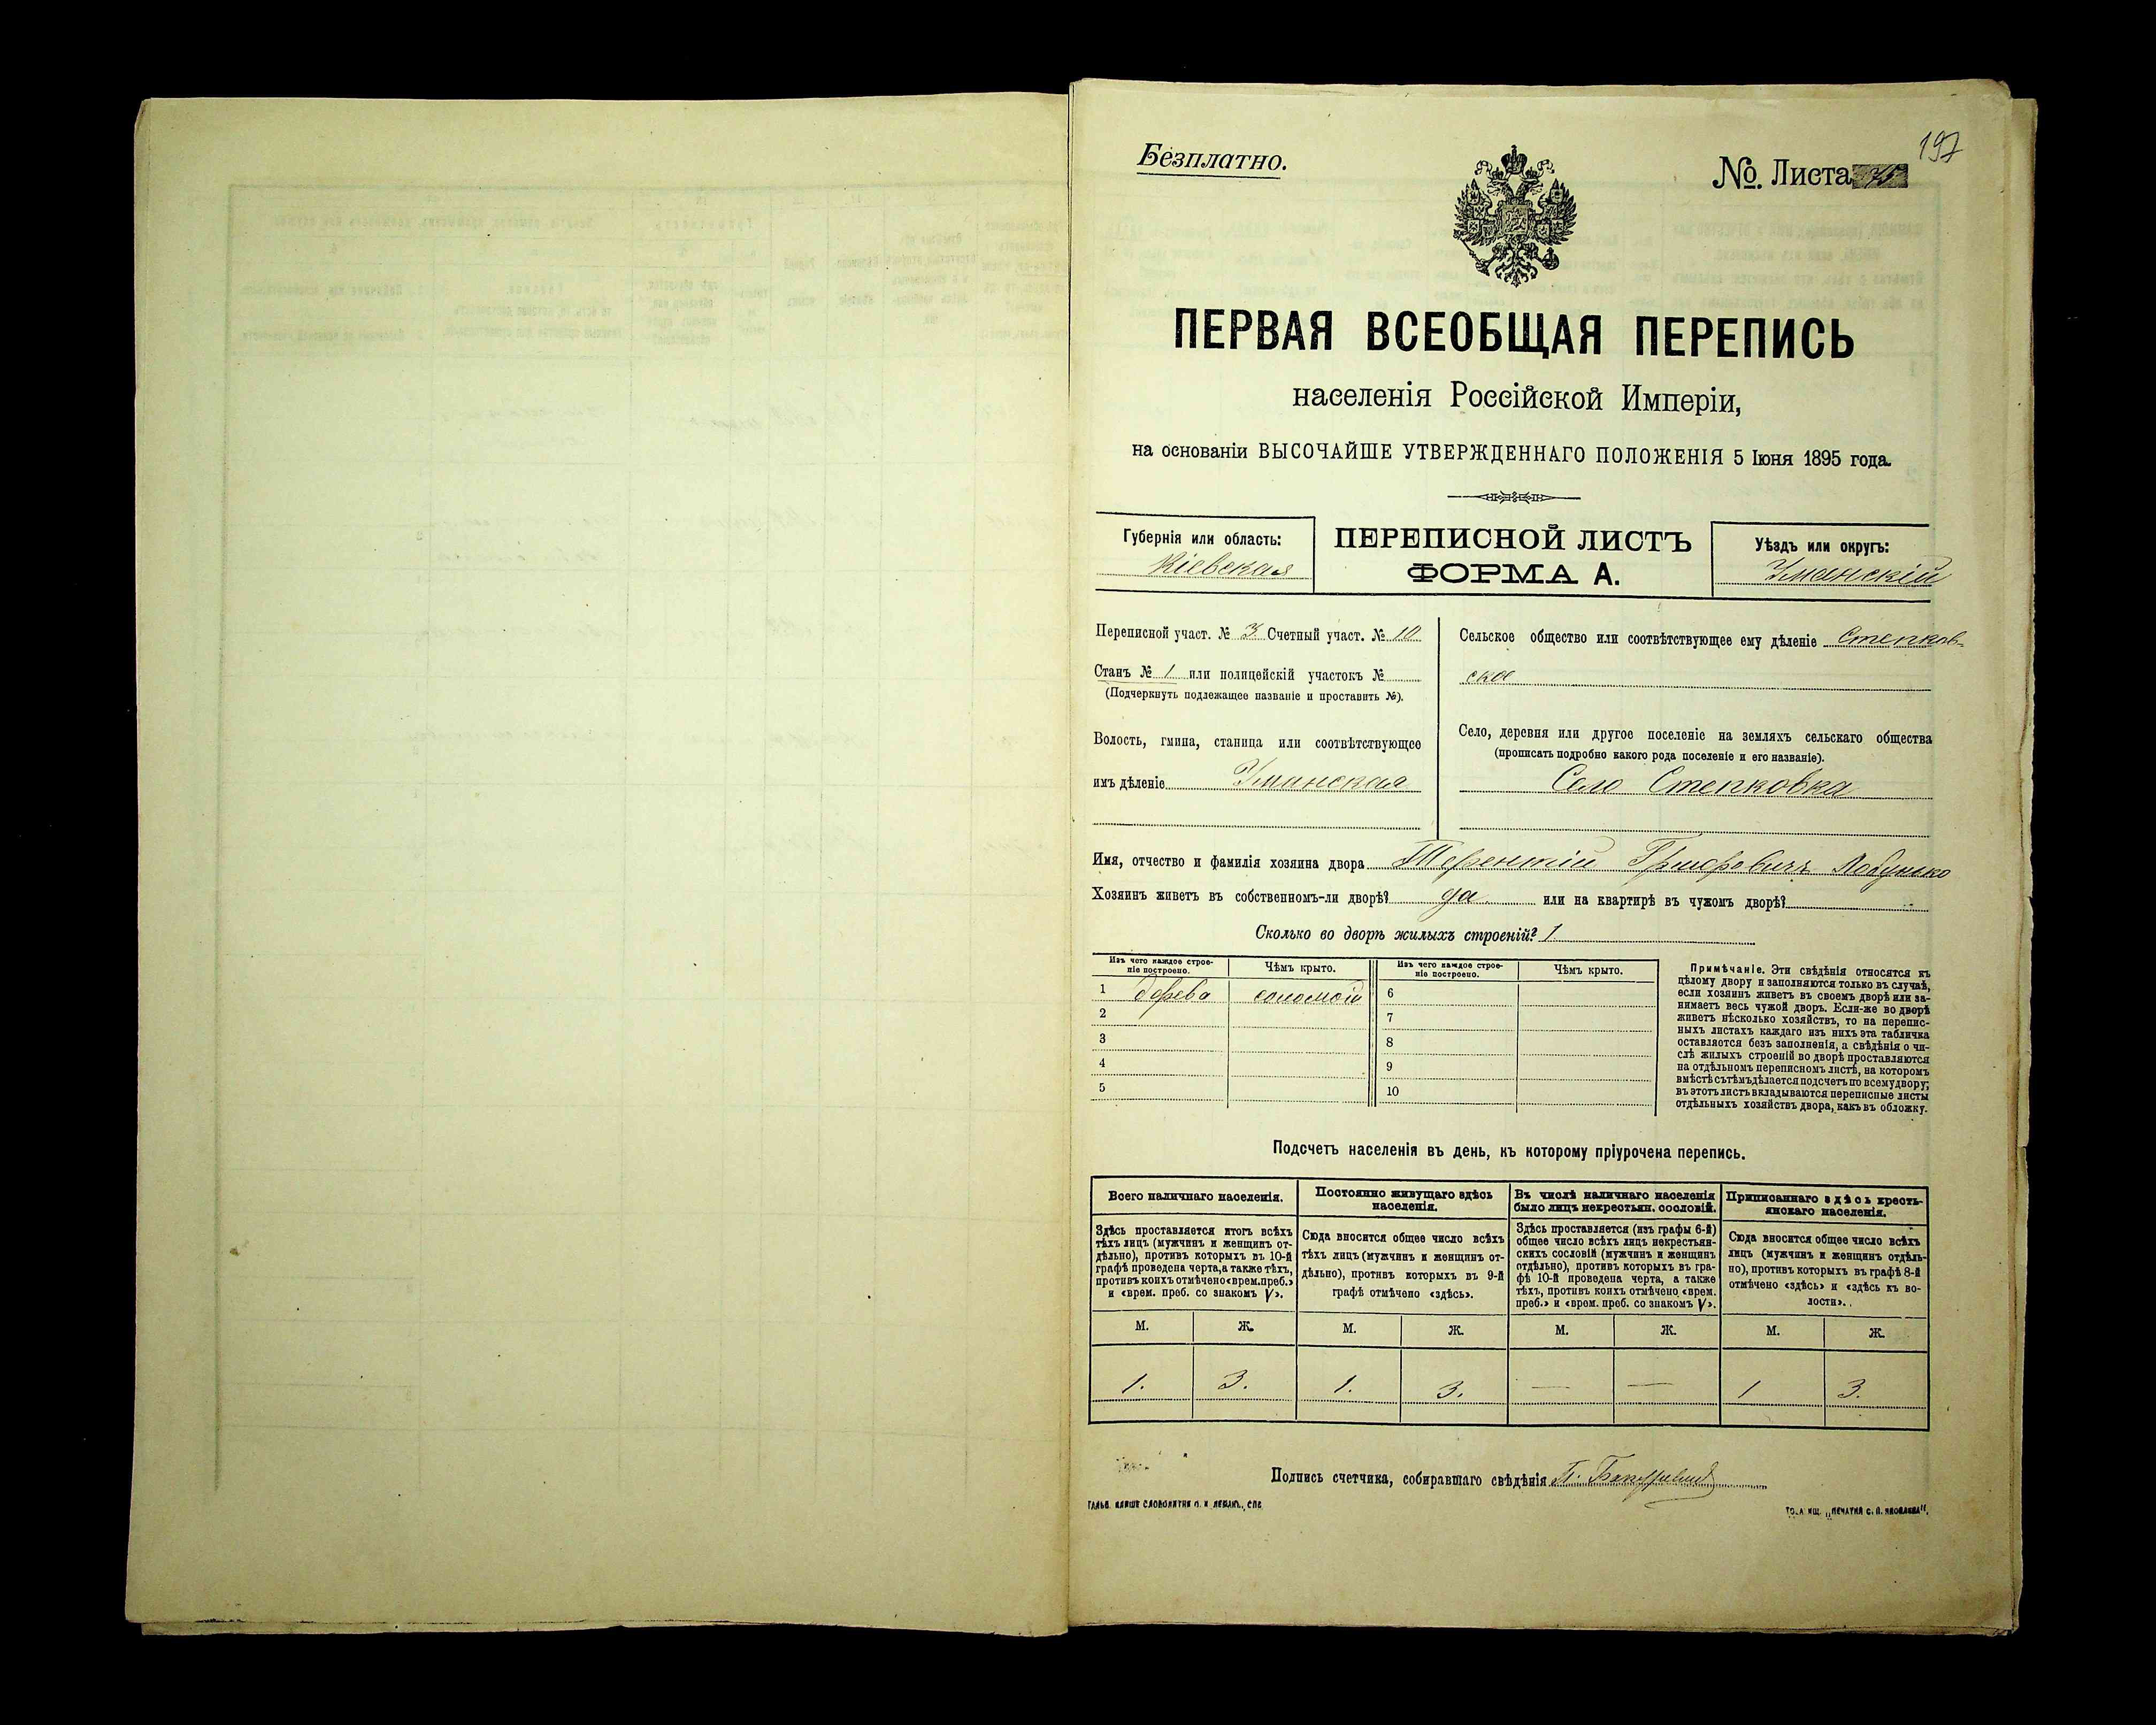 197
Безплатно.
№. Листа 75
ПЕРВАЯ ВСЕОБЩАЯ ПЕРЕПИСЬ
населенія Россійской Имперіи,
на основаніи ВЫСОЧАЙШЕ УТВЕРЖДЕННАГО ПОЛОЖЕНІЯ 5 Іюня 1895 года.
Губернія или область:
Кіевская
ПЕРЕПИСНОЙ ЛИСТЪ
ФОРМА А.
Уѣздъ или округъ:
Уманскій
Переписной участ. № 3 Счетный участ. № 10
Станъ № 1 или полицейскій участокъ №
(Подчеркнуть подлежащее названіе и проставить №).
Волость, гмина, станица или соотвѣтствующее
имъ дѣленіе Уманская
Сельское общество или соотвѣтствующее ему дѣленіе Степков-
ское
Село, деревня или другое поселеніе на земляхъ сельскаго общества
(прописать подробно какого рода поселеніе и его названіе).
Село Степковка
Имя, отчество и фамилія хозяина двора Терентій
Хозяинъ живетъ въ собственномъ-ли дворѣ? да или на квартирѣ въ чужомъ дворѣ?
Сколько во дворѣ жилыхъ строеній? 1
Изъ чего каждое строе-
ніе построено.
Чѣмъ крыто.
Изъ чего каждое строе-
ніе построено.
Чѣмъ крыто.
1 дерева соломой 6
2 7
3 8
4 9
5 10
Примѣчаніе. Эти свѣдѣнія относятся къ
цѣлому двору и заполняются только въ случаѣ,
если хозяинъ живетъ въ своемъ дворѣ или за-
нимаетъ весь чужой дворъ. Если-же во дворѣ
живетъ нѣсколько хозяйствъ, то на перепис-
ныхъ листахъ каждаго изъ нихъ эта табличка
оставляется безъ заполненія, а свѣдѣнія о чи-
слѣ жилыхъ строеній во дворѣ проставляются
на отдѣльномъ переписномъ листѣ, на которомъ
вмѣстѣ съ тѣмъ дѣлается подсчетъ по всему двору;
въ этотъ листъ вкладываются переписные листы
отдѣльныхъ хозяйствъ двора, какъ въ обложку.
Подсчетъ населенія въ день, къ которому пріурочена перепись.
Всего наличнаго населенія.
Здѣсь проставляется итогъ всѣхъ
тѣхъ лицъ (мужчинъ и женщинъ от-
дѣльно), противъ которыхъ въ 10-й
графѣ проведена черта, а также тѣхъ,
противъ коихъ отмѣчено «врем. преб.»
и «врем. преб. со знакомъ V».
Постоянно живущаго здѣсь
населенія.
Сюда вносится общее число всѣхъ
тѣхъ лицъ (мужчинъ и женщинъ от-
дѣльно), противъ которыхъ въ 9-й
графѣ отмѣчено «здѣсь».
Въ числѣ наличнаго населенія
было лицъ некрестьян. сословій.
Здѣсь проставляется (изъ графы 6-й)
общее число всѣхъ лицъ некрестьян-
скихъ сословій (мужчинъ и женщинъ
отдѣльно), противъ которыхъ въ гра-
фѣ 10-й проведена черта, а также
тѣхъ, противъ коихъ отмѣчено «врем.
преб.» и «врем. преб. со знакомъ V».
Приписаннаго здѣсь кресть-
янскаго населенія.
Сюда вносится общее число всѣхъ
лицъ (мужчинъ и женщинъ отдѣль-
но), противъ которыхъ въ графѣ 8-й
отмѣчено «здѣсь» и «здѣсь къ во-
лости».
М. Ж. М. Ж. М. Ж. М. Ж.
1. 3. 1. 3. — — 1 3.
Подпись счетчика, собиравшаго свѣдѣнія